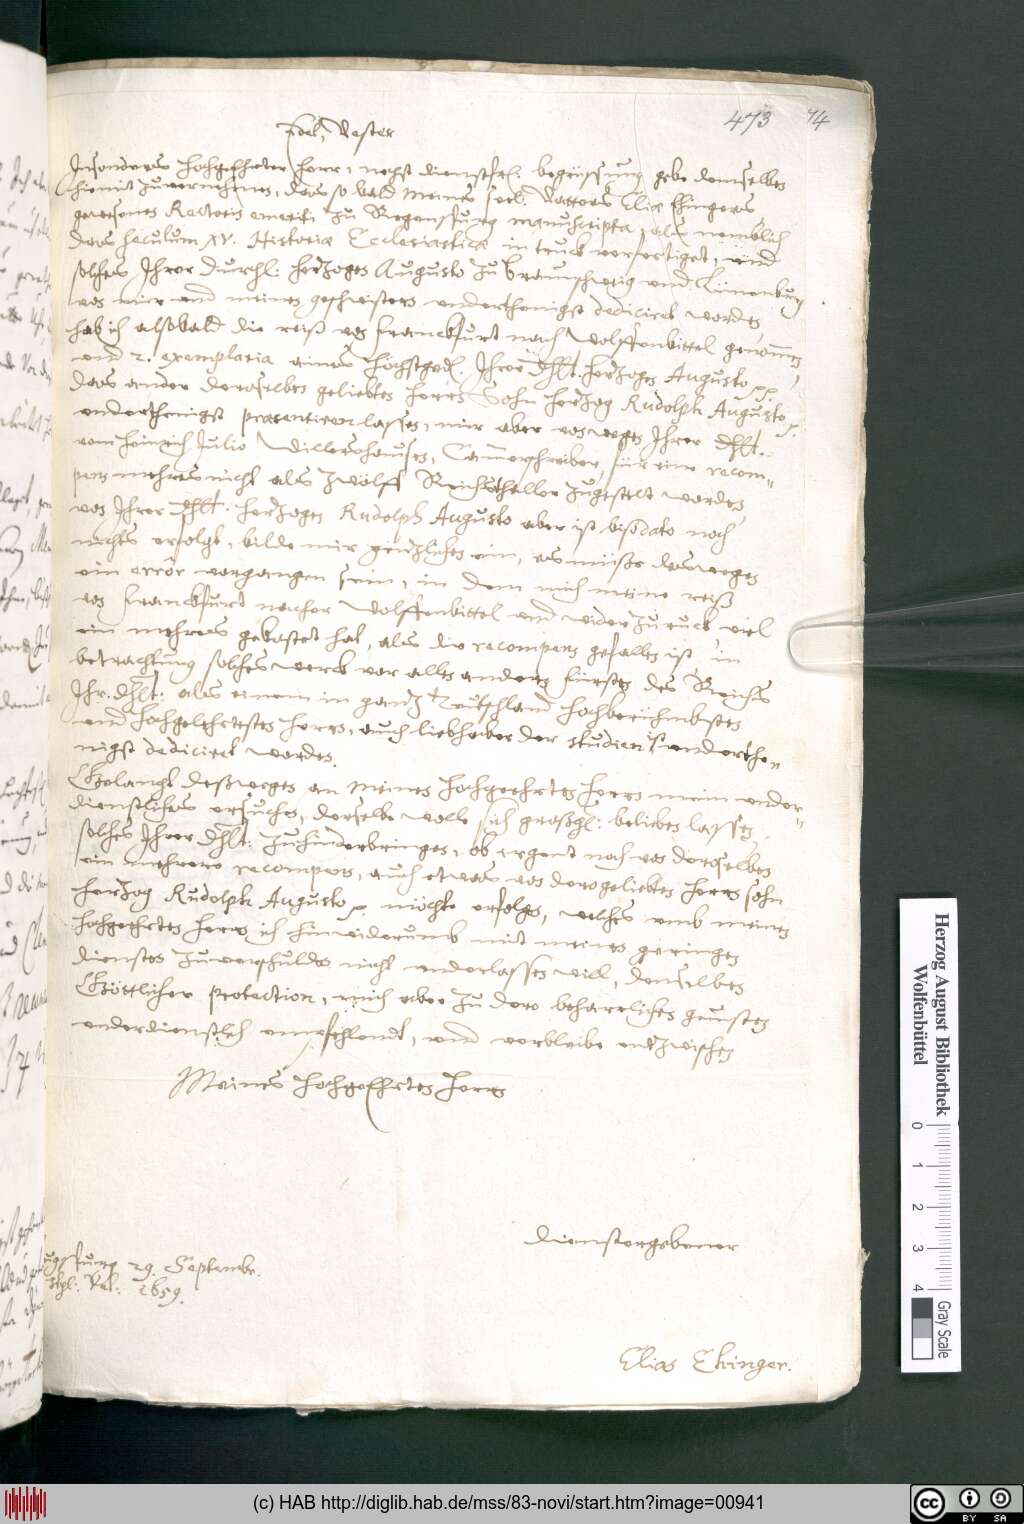 473 74
Edel, Vester
Insonders Hochgeehrter Herr, nechst dienstfr. begrüssung gebe demselben
hiemit zuvernehmen, dass so bald meines seel. Vatters Eliæ Ehingers
gewesenes Rectoris emeriti zu Regenspurg manuscripta, als nemblich
dass Seculum XV. Historiæ Ecclesiasticæ in truck verfertiget, und
solches Ihrer Durchl: Herzogen Augusto zu Braunschweig und Lünenburg
von mir und meinen geschwistern underthenigst dedicirt worden
hab ich alsobald die reiß von Franckfurt nach Wolffenbittel genommen
und 2. exemplaria eines Höchstged. Ihrer Dhlt. Herzogen Augusto
das ander deroselben geliebten Herrn Sohn Herzog Rudolph Augusto
underthenigst præsentiren lassen, mir aber von wegen Ihrer Dhlt.
vom Heinrich Julio Willershausen, Cammerschreiber, für eine recom-
pens mehrers nicht als zwölff Reichsthaller zugestelt worden
von Ihrer Dhlt: Herzogen Rudolph Augusto aber ist biß dato noch
nichts erfolgt, bilde mir gentzlichen ein, es müsse desswegen
ein error vorgangen sein, in dem mich meine reiß
von Franckfurt nacher Wolffenbittel und wider zu ruck, viel
ein mehrers gekostet hat, als die recompens gefallen ist, in
betrachtung solches werck vor allen andern fürsten des Reichs
Ihr. Dhlt: als einem in gantz Teutschland hochberühmbsten
und Hochgelehrtesten Herrn, auch liebhaber der studien underthe-
nigst dedicirt worden.
Gelangt desswegen an meinen Hochgeehrten Herrn mein under-
dienstliches ersuchen, derselbe wolle sich großg: belieben lassen,
solches Ihrer Dhlt: zu hinderbringen, ob ergent noch von deroselben
ein mehrere recompens, auch etwas von dero geliebten Herrn Sohn
Herzog Rudolph Augusto möchte erfolgen, welches umb meinen
Hochgeehrten Herrn ich hinwiderumb mit meinen geringen
diensten zuverschulden nicht underlassen will, denselben
Göttlicher protection, mich aber zu dero beharrlichen gunsten
underdienstlich empfehlendt, und verbleibe entzwischen
Meines Hochgeehrten Herrn
Dienstergebener
ugspurg 29. Septembr.
1659.
Elias Ehinger.
Herzog August Bibliothek
Wolfenbüttel
0 1 2 3 4
Gray Scale
(c) HAB http://diglib.hab.de/mss/83-novi/start.htm?image=00941
cc BY SA